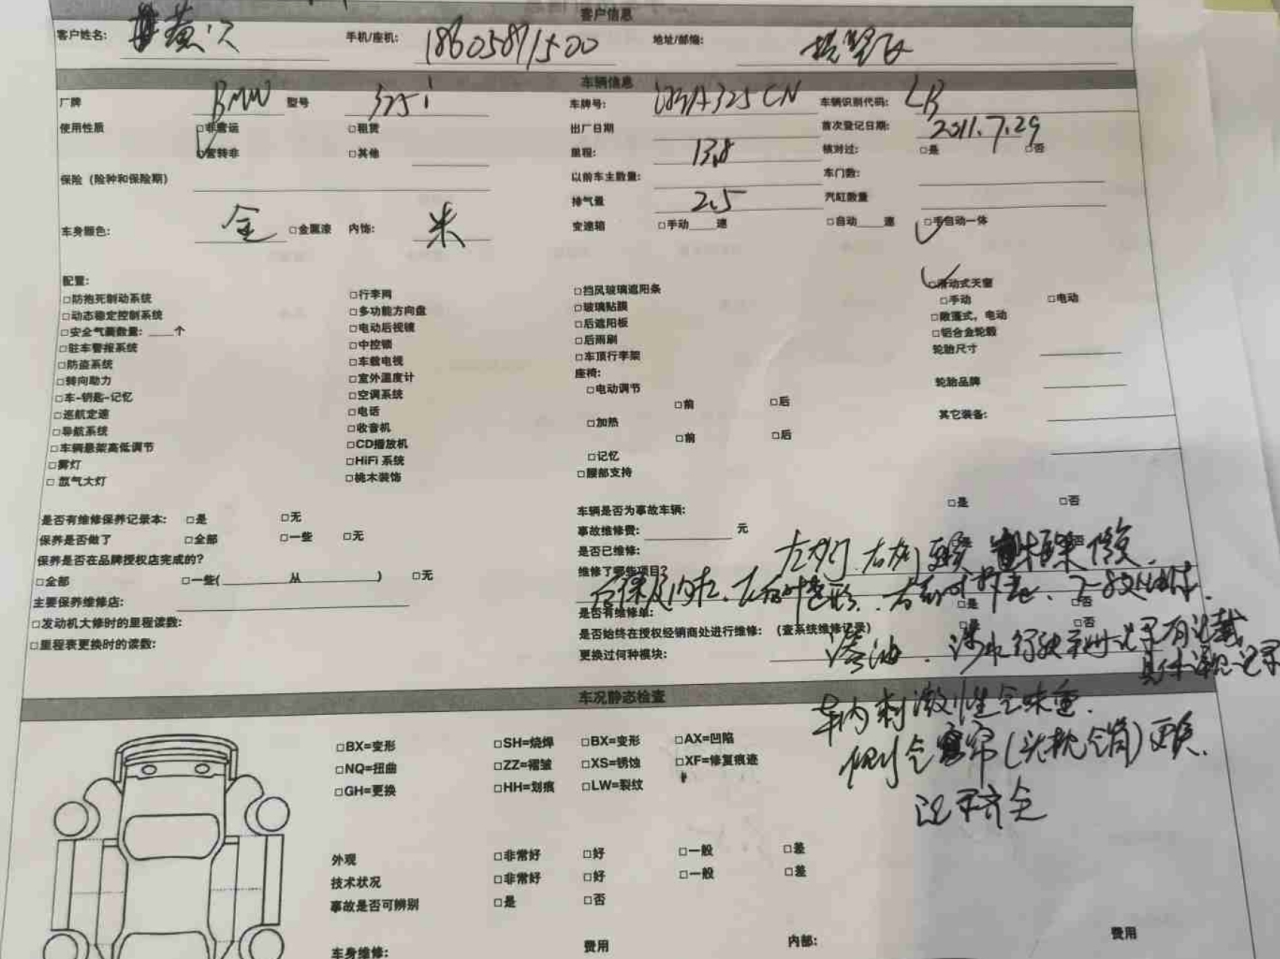 客户信息
客户姓名: 手机/座机: 18605871500 地址/邮编:
车辆信息
厂牌 BMW 型号 325i 车牌号: 浙A325CN 车辆识别代码: LB
使用性质 □非营运 □租赁 出厂日期 首次登记日期: 2011.7.29
□营转非 □其他 里程: 13.8 核对过: □是 □否
保险（险种和保险期） 以前车主数量: 车门数:
排气量 2.5 汽缸数量
车身颜色: 金 □金属漆 内饰: 米 变速箱 □手动 速 □自动 速 □手自动一体
配置: □滑动式天窗
□防抱死制动系统 □行李网 □挡风玻璃遮阳条 □手动 □电动
□动态稳定控制系统 □多功能方向盘 □玻璃贴膜 □敞篷式，电动
□安全气囊数量: 个 □电动后视镜 □后遮阳板 □铝合金轮毂
□驻车警报系统 □中控锁 □后雨刷 轮胎尺寸
□防盗系统 □车载电视 □车顶行李架
□转向助力 □室外温度计 座椅: 轮胎品牌
□车-钥匙-记忆 □空调系统 □电动调节
□巡航定速 □电话 □前 □后 其它装备:
□导航系统 □收音机 □加热
□车辆悬架高低调节 □CD播放机 □前 □后
□雾灯 □HiFi 系统 □记忆
□氙气大灯 □桃木装饰 □腰部支持
是否有维修保养记录本: □是 □无 车辆是否为事故车辆: □是 □否
保养是否做了 □全部 □一些 □无 事故维修费: 元
保养是否在品牌授权店完成的? 是否已维修: 左前门 右前门 修复
□全部 □一些( 从 ) □无 维修了哪些项目?
主要保养维修店: 是否有维修单: □是 □否
□发动机大修时的里程读数: 是否始终在授权经销商处进行维修: （查系统维修记录） □是 □否
□里程表更换时的读数: 更换过何种模块: 渗油
车况静态检查
车内刺激性气味重.
侧气囊帘(头枕气囊)更换.
记录齐全
□BX=变形 □SH=烧焊 □BX=变形 □AX=凹陷
□NQ=扭曲 □ZZ=褶皱 □XS=锈蚀 □XF=修复痕迹
□GH=更换 □HH=划痕 □LW=裂纹
外观 □非常好 □好 □一般 □差
技术状况 □非常好 □好 □一般 □差
事故是否可辨别 □是 □否
车身维修: 费用 内部: 费用